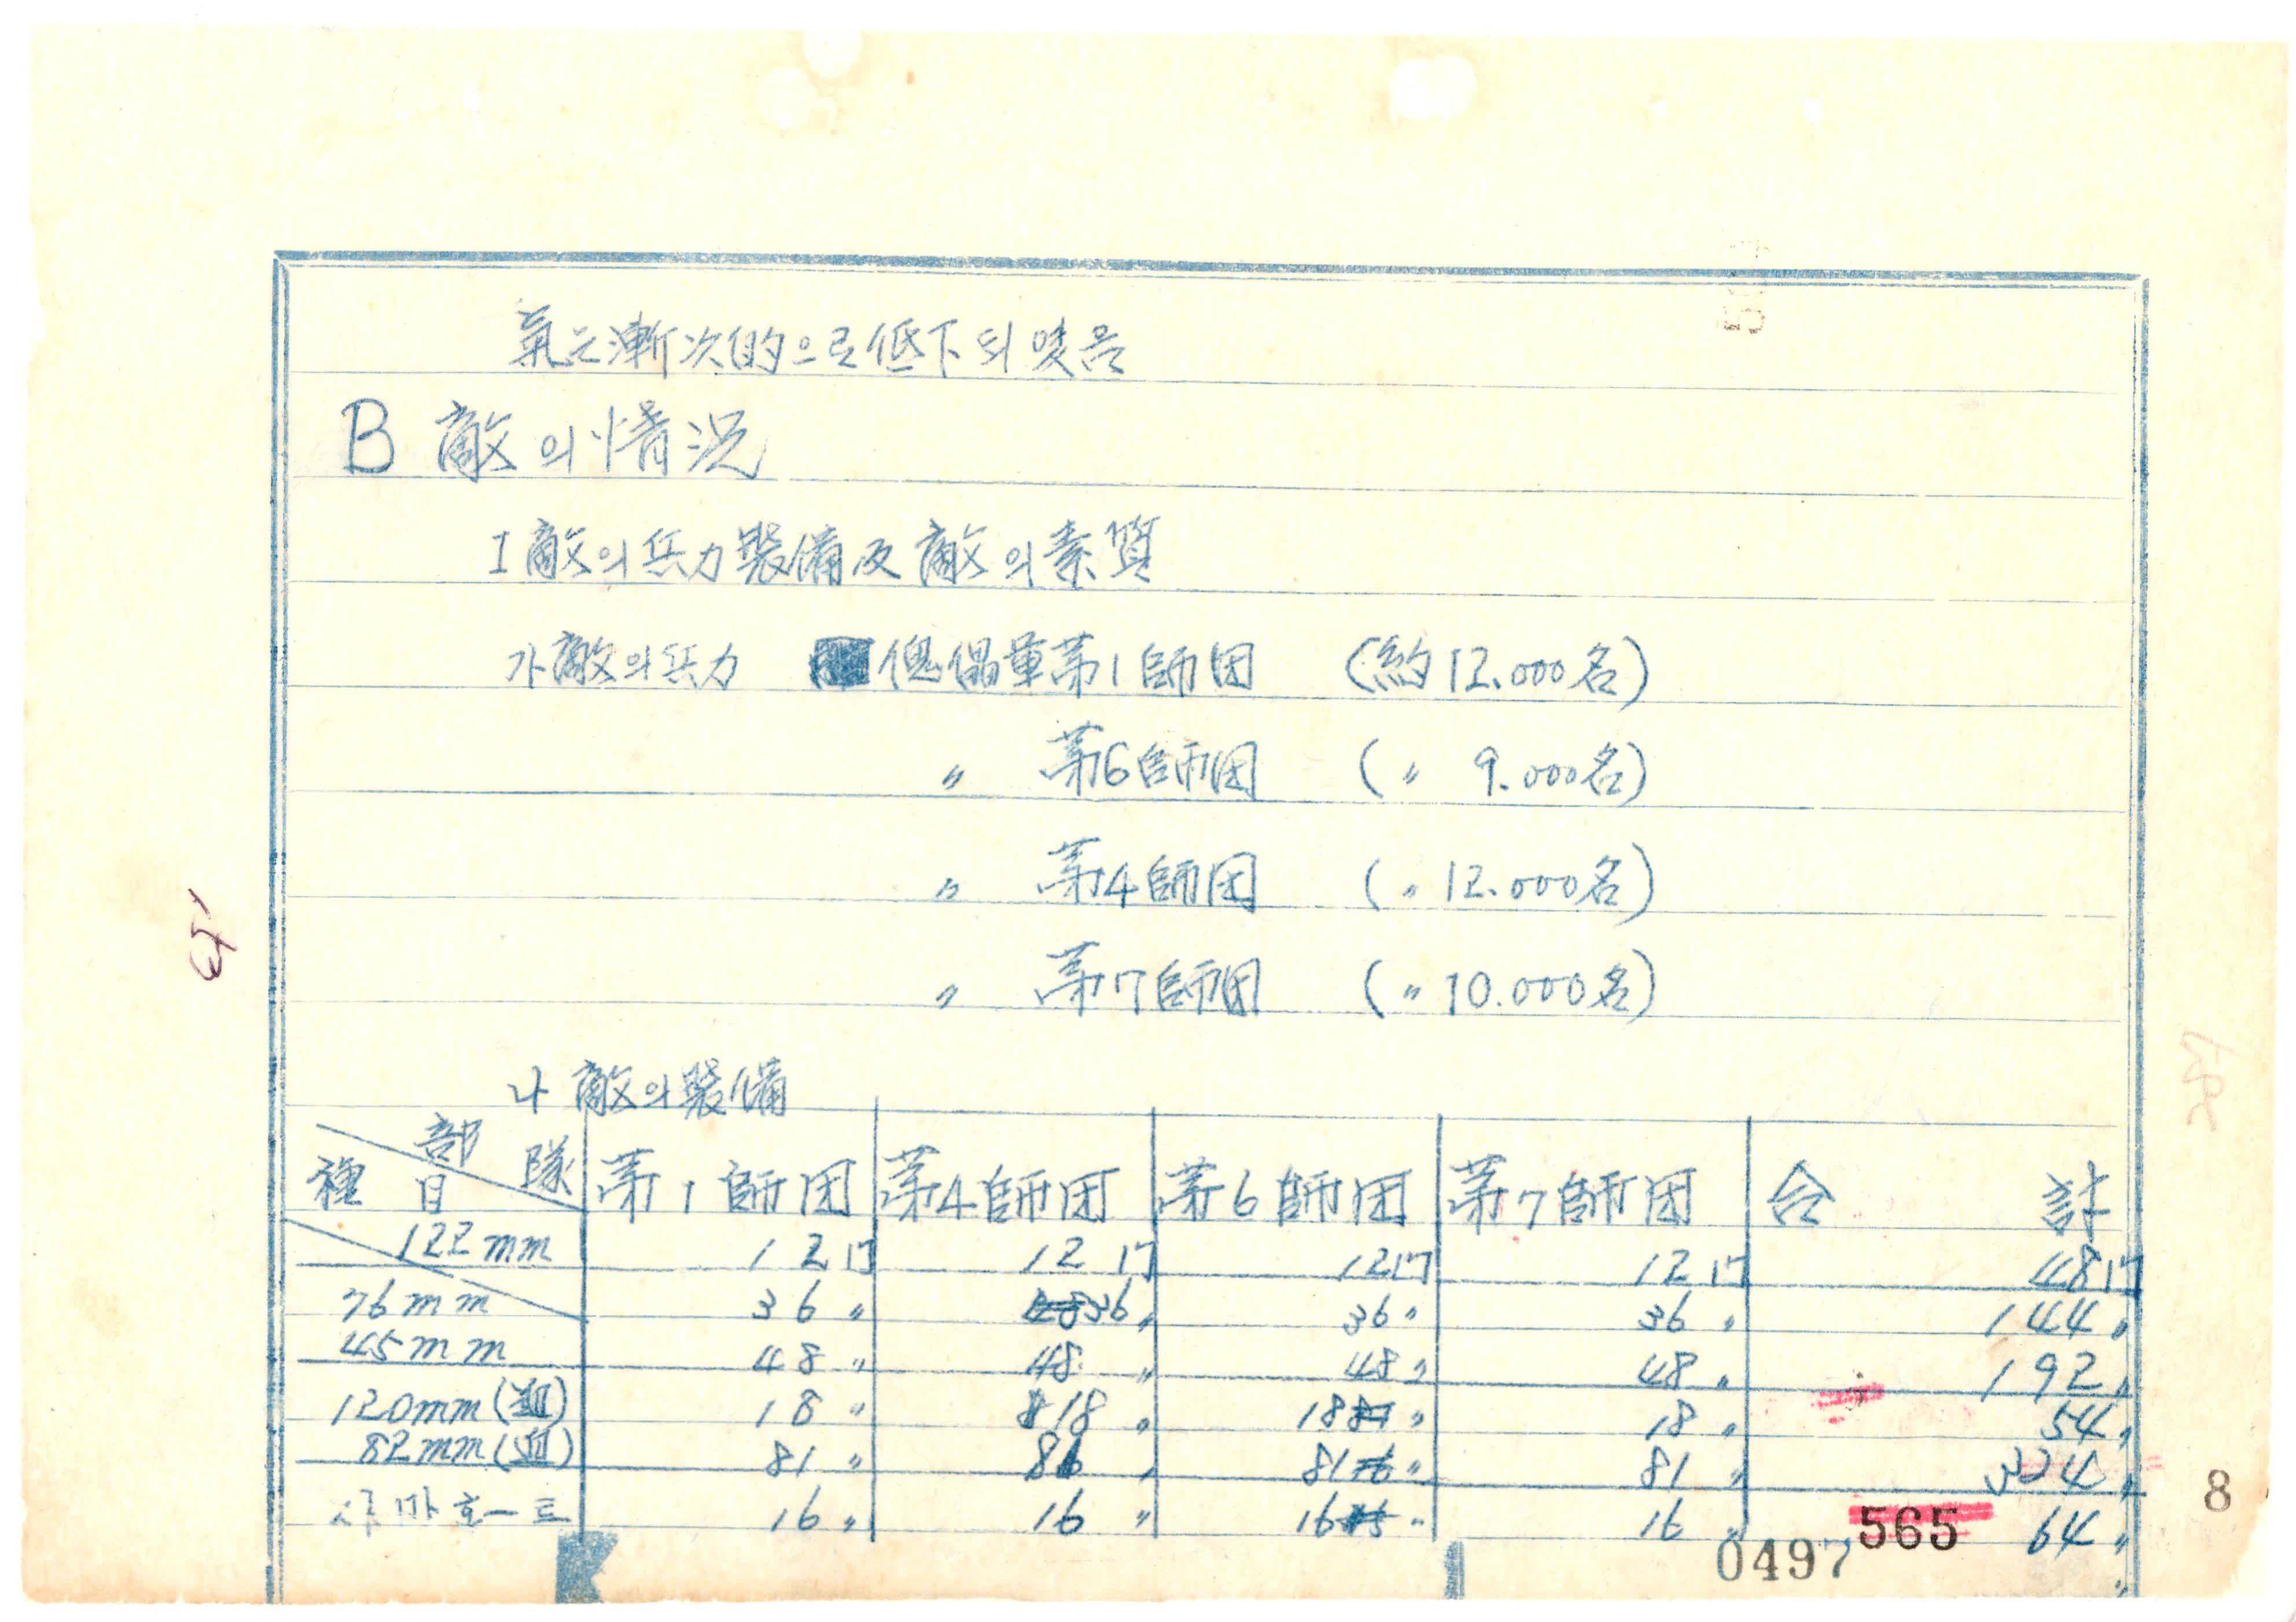 氣는漸次的으로低下되었음
B 敵의情況
I 敵의兵力裝備及敵의素質
가 敵의兵力 傀儡軍第1師団 (約12.000名)
〃 第6師団 (〃 9.000名)
〃 第4師団 (〃 12.000名)
〃 第7師団 (〃 10.000名)
나 敵의裝備
部隊 種目 第1師団 第4師団 第6師団 第7師団 合計
122mm 12门 12门 12门 12门 48门
76mm 36〃 36〃 36〃 36〃 144〃
45mm 48〃 48〃 48〃 48〃 192〃
120mm(迫) 18〃 18〃 18〃 18〃 54〃
82mm(迫) 81〃 81〃 81〃 81〃 324〃
16〃 16〃 16〃 16〃 64〃
0497 565
8